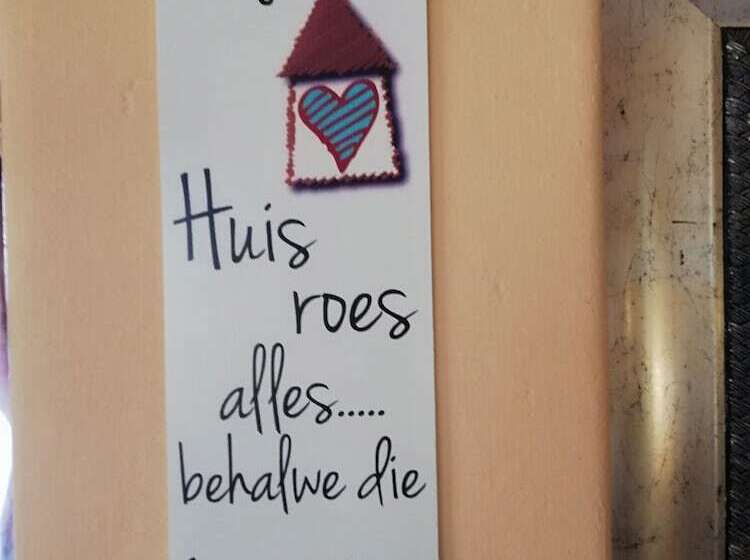 Huis
roes
alles.....
behalwe die